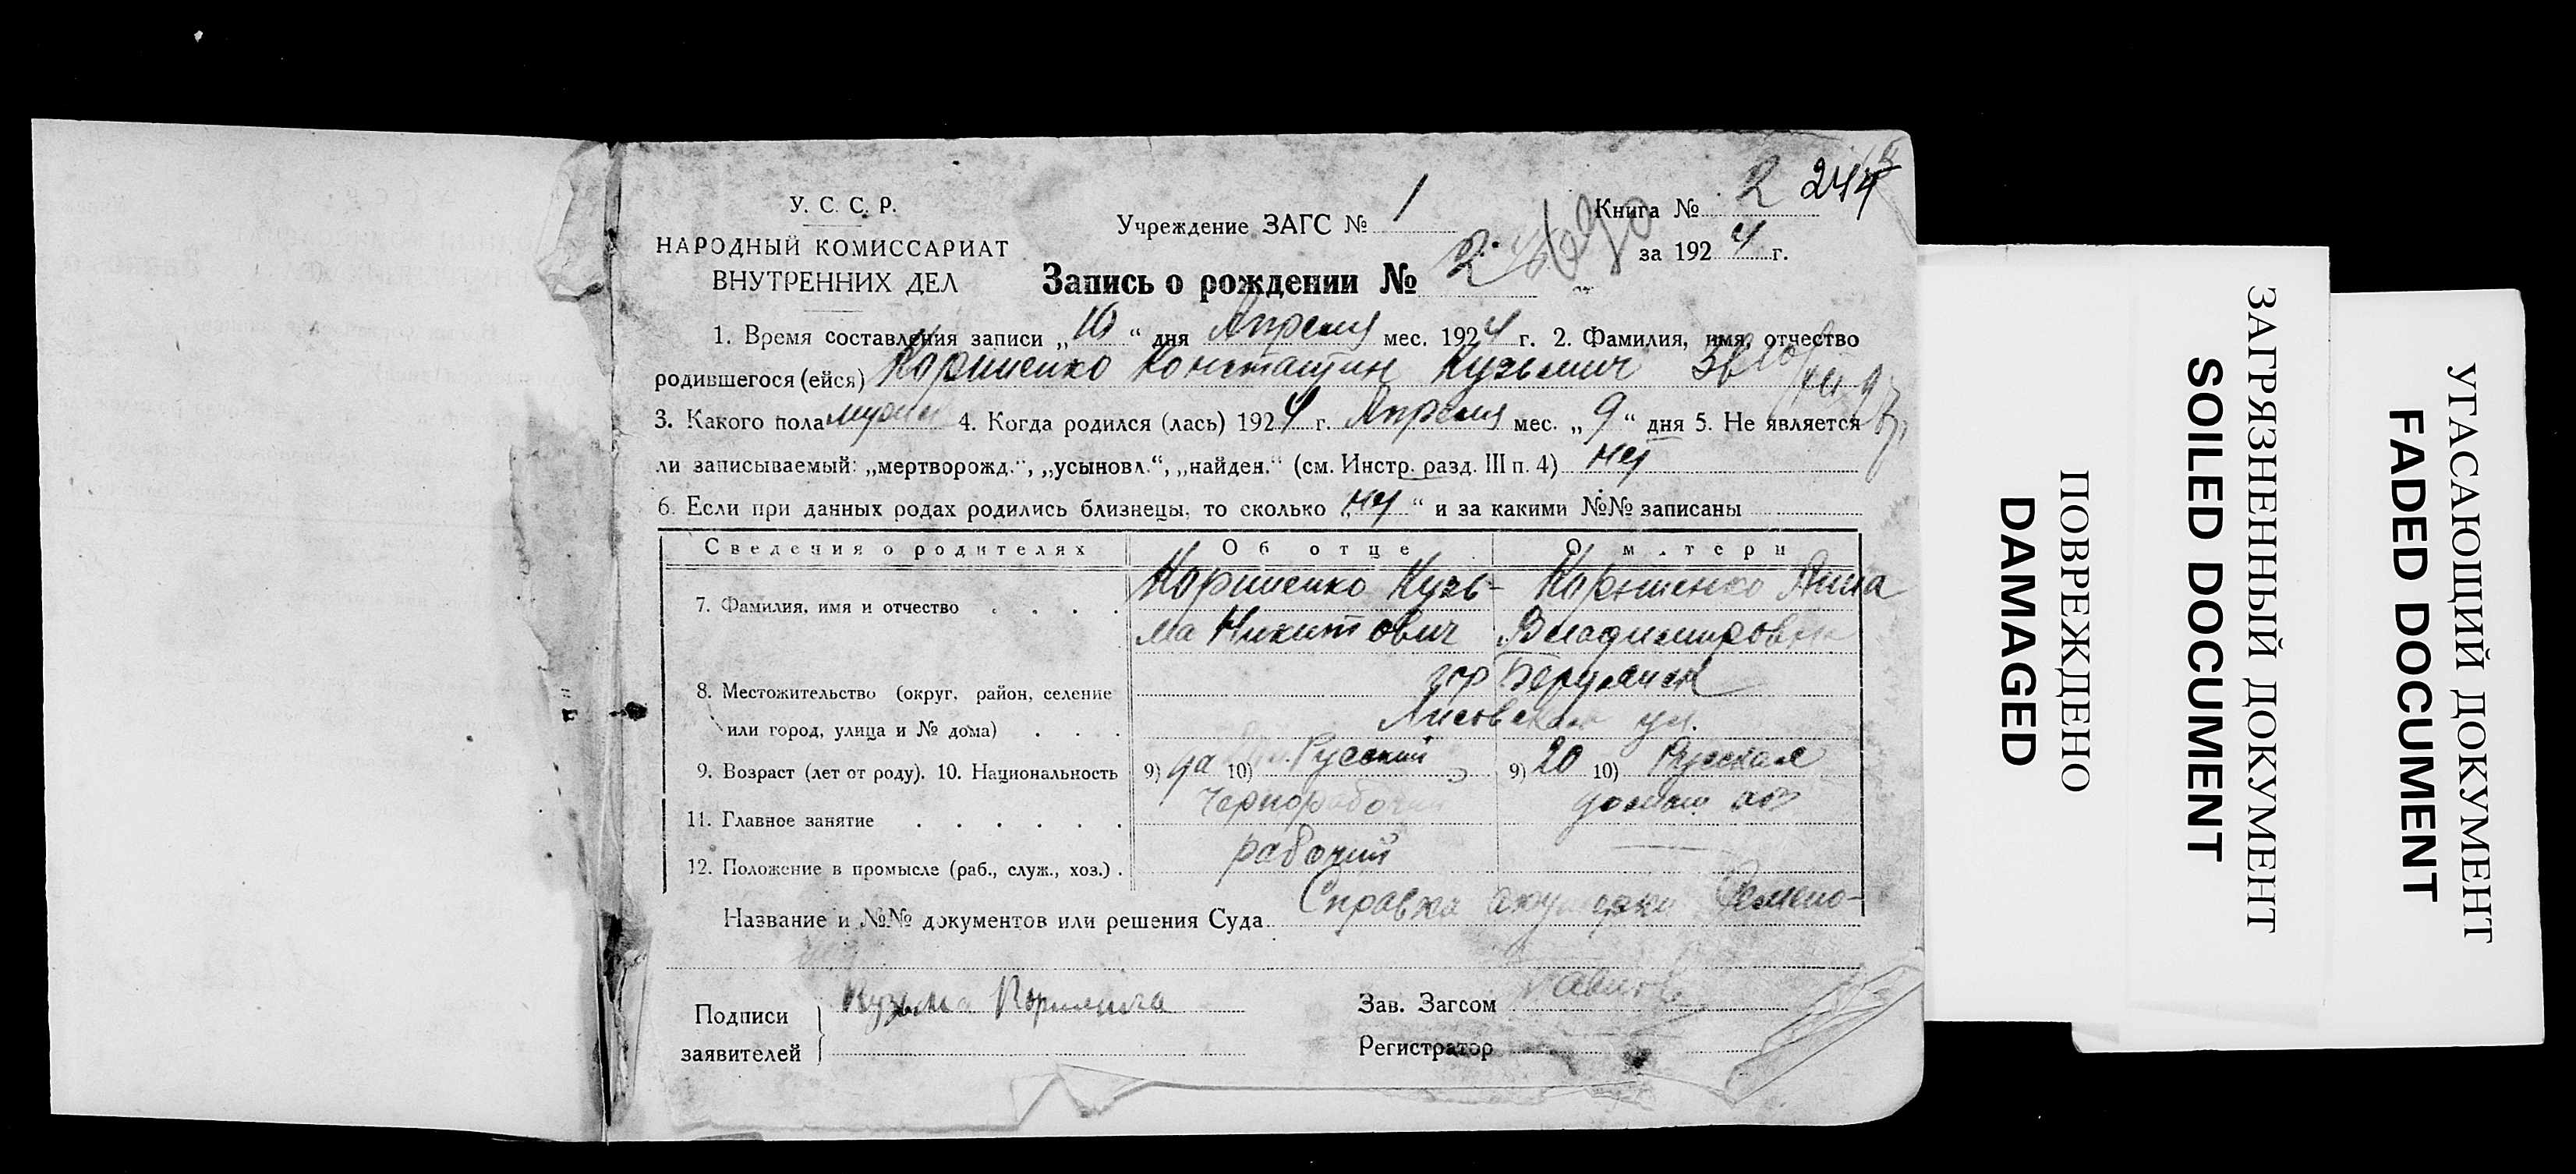 У. С. С. Р.
НАРОДНЫЙ КОМИССАРИАТ
ВНУТРЕННИХ ДЕЛ
Учреждение ЗАГС № 1
Книга № 2 244
за 1924 г.
Запись о рождении № 2
1. Время составления записи „10“ дня Апреля мес. 1924 г. 2. Фамилия, имя, отчество
родившегося (ейся) Константин Кузьмич
3. Какого пола 4. Когда родился (лась) 1924 г. Апреля мес. „9“ дня 5. Не является
ли записываемый: „мертворожд.“, „усыновл.“, „найден.“ (см. Инстр. разд. III п. 4) нет
6. Если при данных родах родились близнецы, то сколько „нет“ и за какими №№ записаны
Сведения о родителях Об отце О матери
7. Фамилия, имя и отчество Кузь- Анна
ма Никитович Владимировна
8. Местожительство (округ, район, селение
или город, улица и № дома) ул.
9. Возраст (лет от роду). 10. Национальность 9) 10) Русский 9) 20 10) Русская
11. Главное занятие Чернорабочий домаш хоз
12. Положение в промысле (раб., служ., хоз.) рабочий
Название и №№ документов или решения Суда Справка акушерки
Подписи
заявителей
Кузьма
Зав. Загсом
Регистратор
ПОВРЕЖДЕНО
DAMAGED
ЗАГРЯЗНЕННЫЙ ДОКУМЕНТ
SOILED DOCUMENT
УГАСАЮЩИЙ ДОКУМЕНТ
FADED DOCUMENT